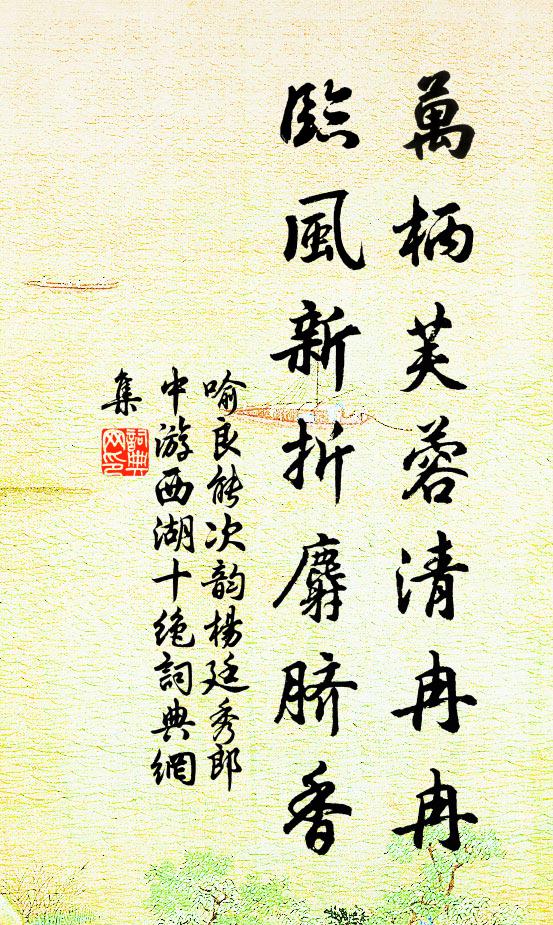 萬柄芙蓉清冉冉
臨風新折麝臍香
喻良能次韵楊廷秀郎
中游西湖十絶詞典網
集
詞典
网印